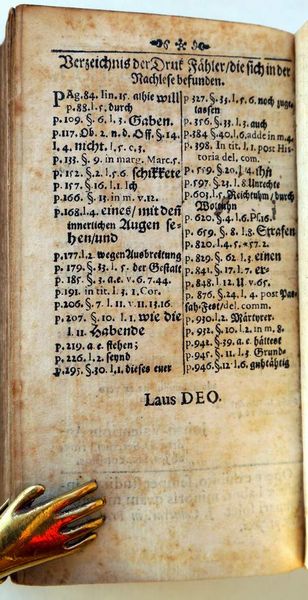 Verzeichnis der Druk Fähler/die sich in der
Nachlese befunden.
PAg. 84. lin. 15. alhie will
p. 88. l. 5. durch
p. 109. §. 6. l. 3. Gaben.
p. 117. Ob. 2. n. d. Off. §. 14.
l. 4. nicht. l. 5. c. 3.
p. 133. §. 9. in marg. Marc. 5.
p. 152. §. 2. l. 6. schikkete
p. 157. §. 16. l. 1. ich
p. 166. §. 13. in m. v. 12.
p. 168. l. 4. eines/ mit den
innerlichen Augen se-
hen/und
p. 177. l. 2. wegen Ausbreitung
p. 179. §. 33. l. 5. der Gestalt
p. 185. §. 3. a. e. v. 6. 7. 44.
p. 191. in tit. l. 3. 1. Cor.
p. 206. §. 7. l. 11. v. 11. 13. 16.
p. 207. §. 10. l. 1. wie die
l. 11. Habende
p. 219. a. e. stehen;
p. 226. l. 2. seynd
p. 295. §. 30. l. 1. dieses euer
p. 327. §. 33. l. 5. 6. noch zuge-
lassen
p. 356. §. 33. l. 3. auch
p. 384. §. 40. l. 6. adde in m. 4.
p. 398. In tit. l. 1. post Hi-
storia del. com.
p. 559. §. 20. l. 4. ihn
p. 597. §. 23. l. 8. Unrechte
p. 603. l. 5. Reichtuhm/durch
p. 620. §. 4. l. 6. Ps. 16.
p. 659. §. 8. l. 8. Strafen
p. 820. l. 4. 5. 57. 2.
p. 829. §. 62. l. 3. einen
p. 841. §. 17. l. 7. er-
p. 848. l. 12. v. 65.
p. 876. §. 24. l. 4. post Pas-
sah-Fest/del. comm.
p. 930. l. 2. Märtyrer.
p. 932. §. 10. l. 2. in m. 8.
p. 941. §. 39. a. e. hättest
p. 945. §. 11. l. 3. Grund-
p. 946. §. 12. l. 6. guhtähtig
Laus DEO.